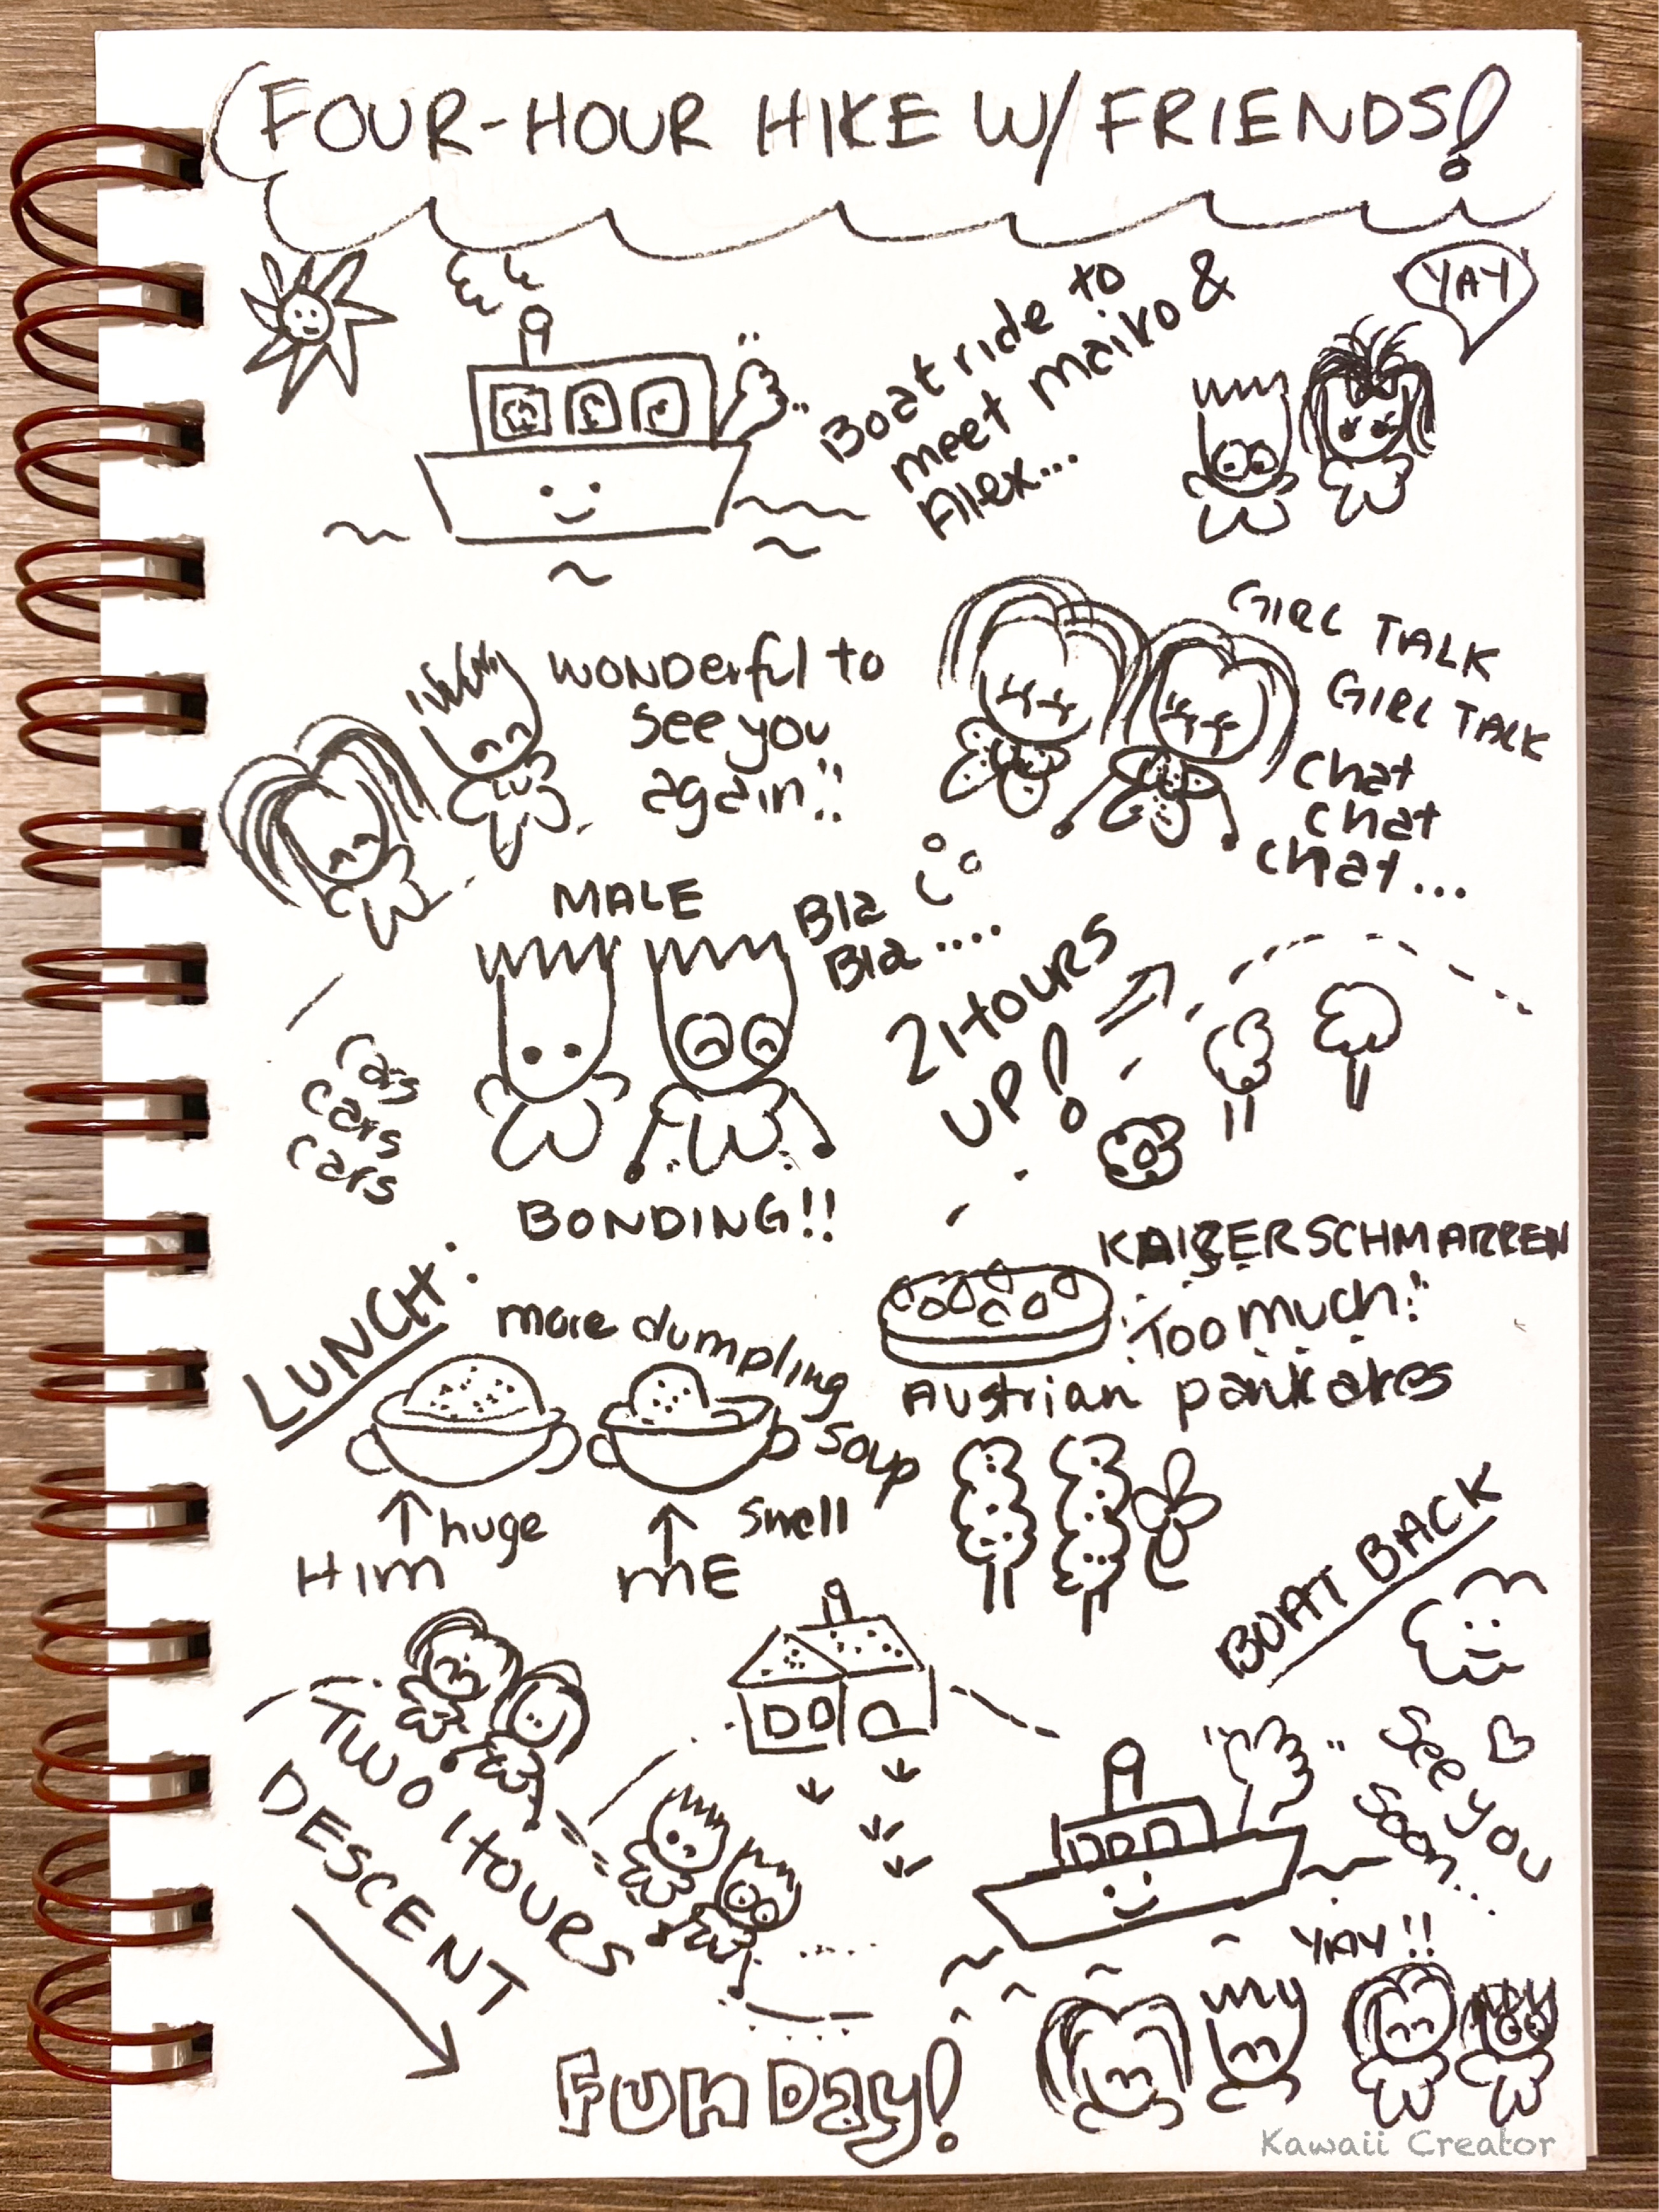 FOUR-HOUR HIKE W/ FRIENDS!
YAY
Boat ride to
meet maiko &
Alex...
WONDerful to
see you
again!!
GIRL TALK
GIRL TALK
chat
chat
chat...
MALE
Bla
Bla....
Cars
Cars
Cars
BONDING!!
2 HOURS
UP!
LUNCH:
more dumpling
soup
huge
HIM
small
ME
KAISERSCHMARREN
Too much!!
Austrian pankakes
BOAT BACK
TWO HOURS
DESCENT
See you
soon...
YAY!!
Fun Day!
Kawaii Creator